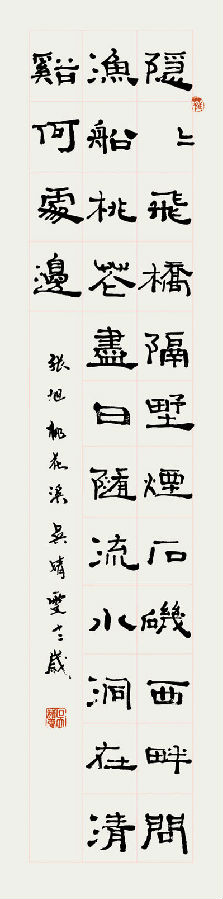 隱〻飛橋隔墅煙石磯西畔問
漁船桃花盡日隨流水洞在清
谿何處邊
張旭桃花溪吳晴雯十二歲